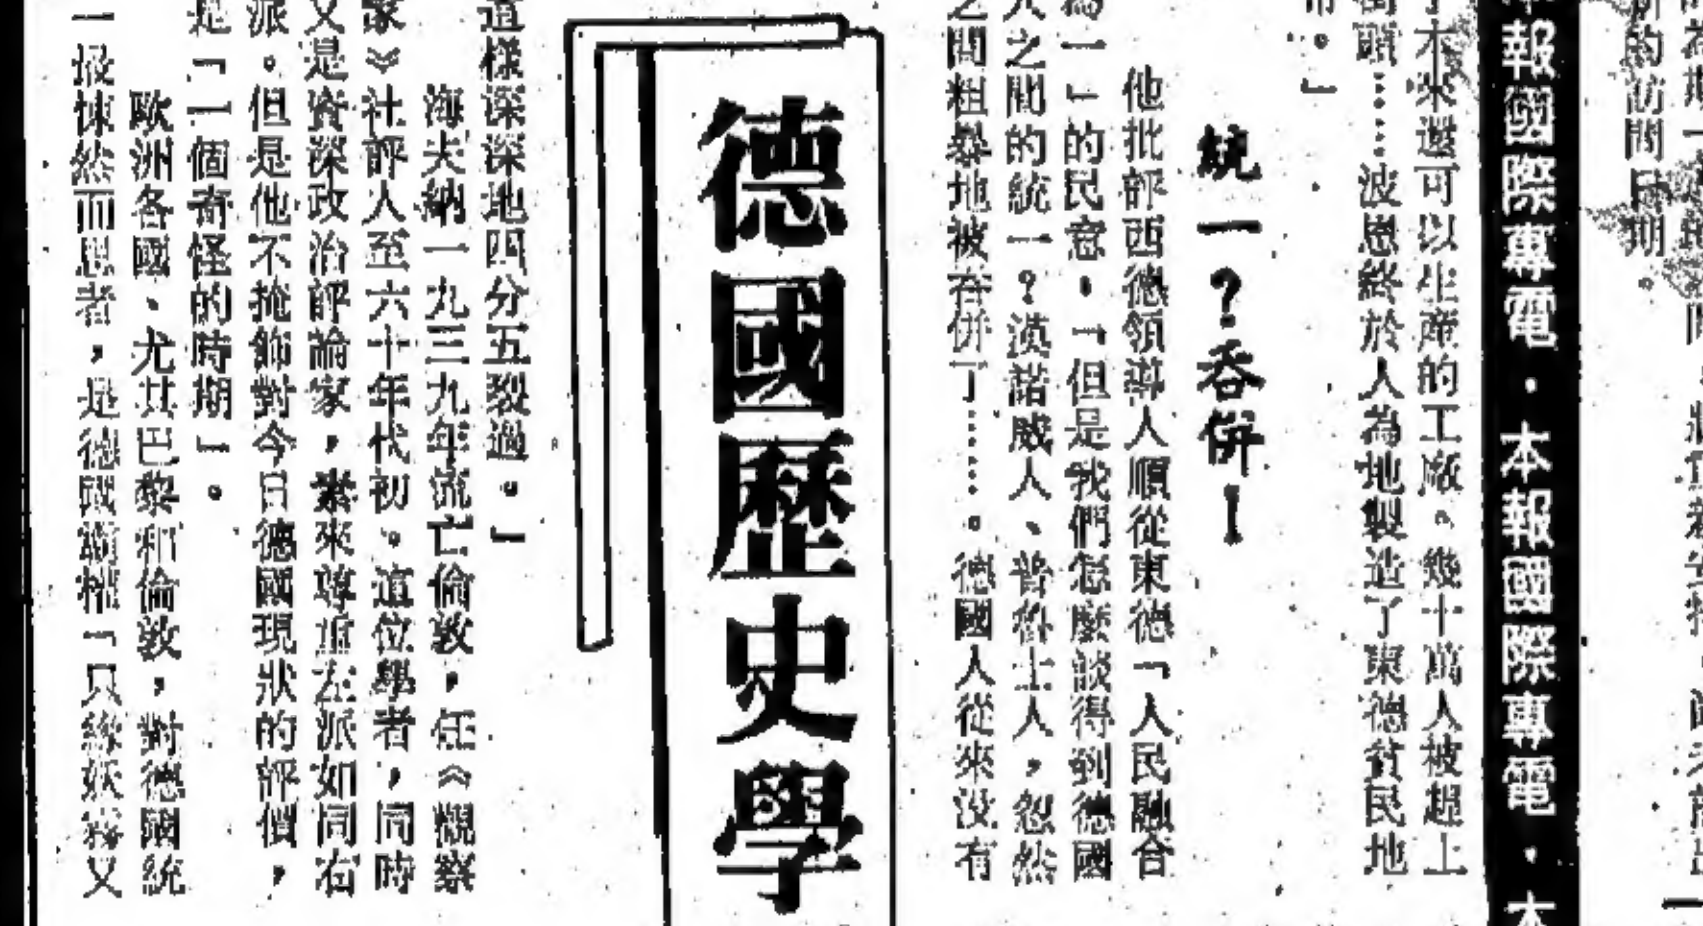 的訪問日期。
本報國際專電·本報國際專電·本
本來還可以生産的工廠。幾十萬人被趕上
街頭……波恩終於人為地製造了東德貧民地
帶。」
統一?吞併!
他批評西德領導人順從東德「人民融合
為一」的民意。「但是我們怎麽談得到德國
人之間的統一?漢諾威人、普魯士人,忽然
之間粗暴地被吞併了……。德國人從來没有
德國歷史學
這樣深深地四分五裂過。」
海夫納一九三九年流亡倫敦,任《觀察
家》社評人至六十年代初。這位學者,同時
又是資深政治評論家,素來尊重左派如同右
派。但是他不掩飾對今日德國現狀的評價,
是「一個奇怪的時期」。
歐洲各國、尤其巴黎和倫敦,對德國統
一最悚然而思者,是德國霸權「只緣妖霧又